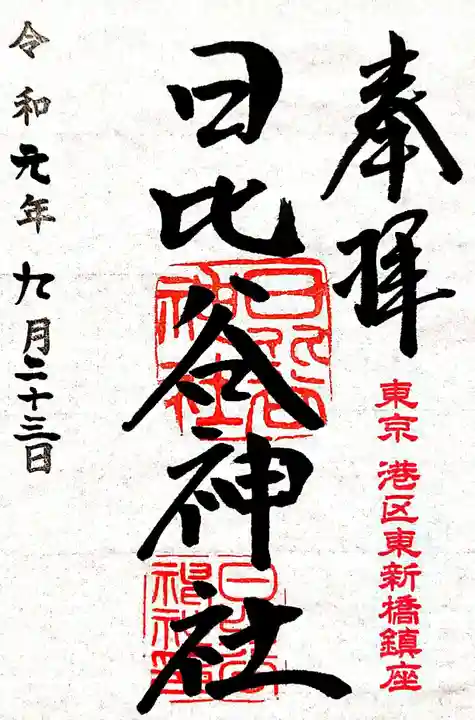 奉拝
東京 港区東新橋鎮座
日比谷神社
日比谷神社
令和元年九月二十三日